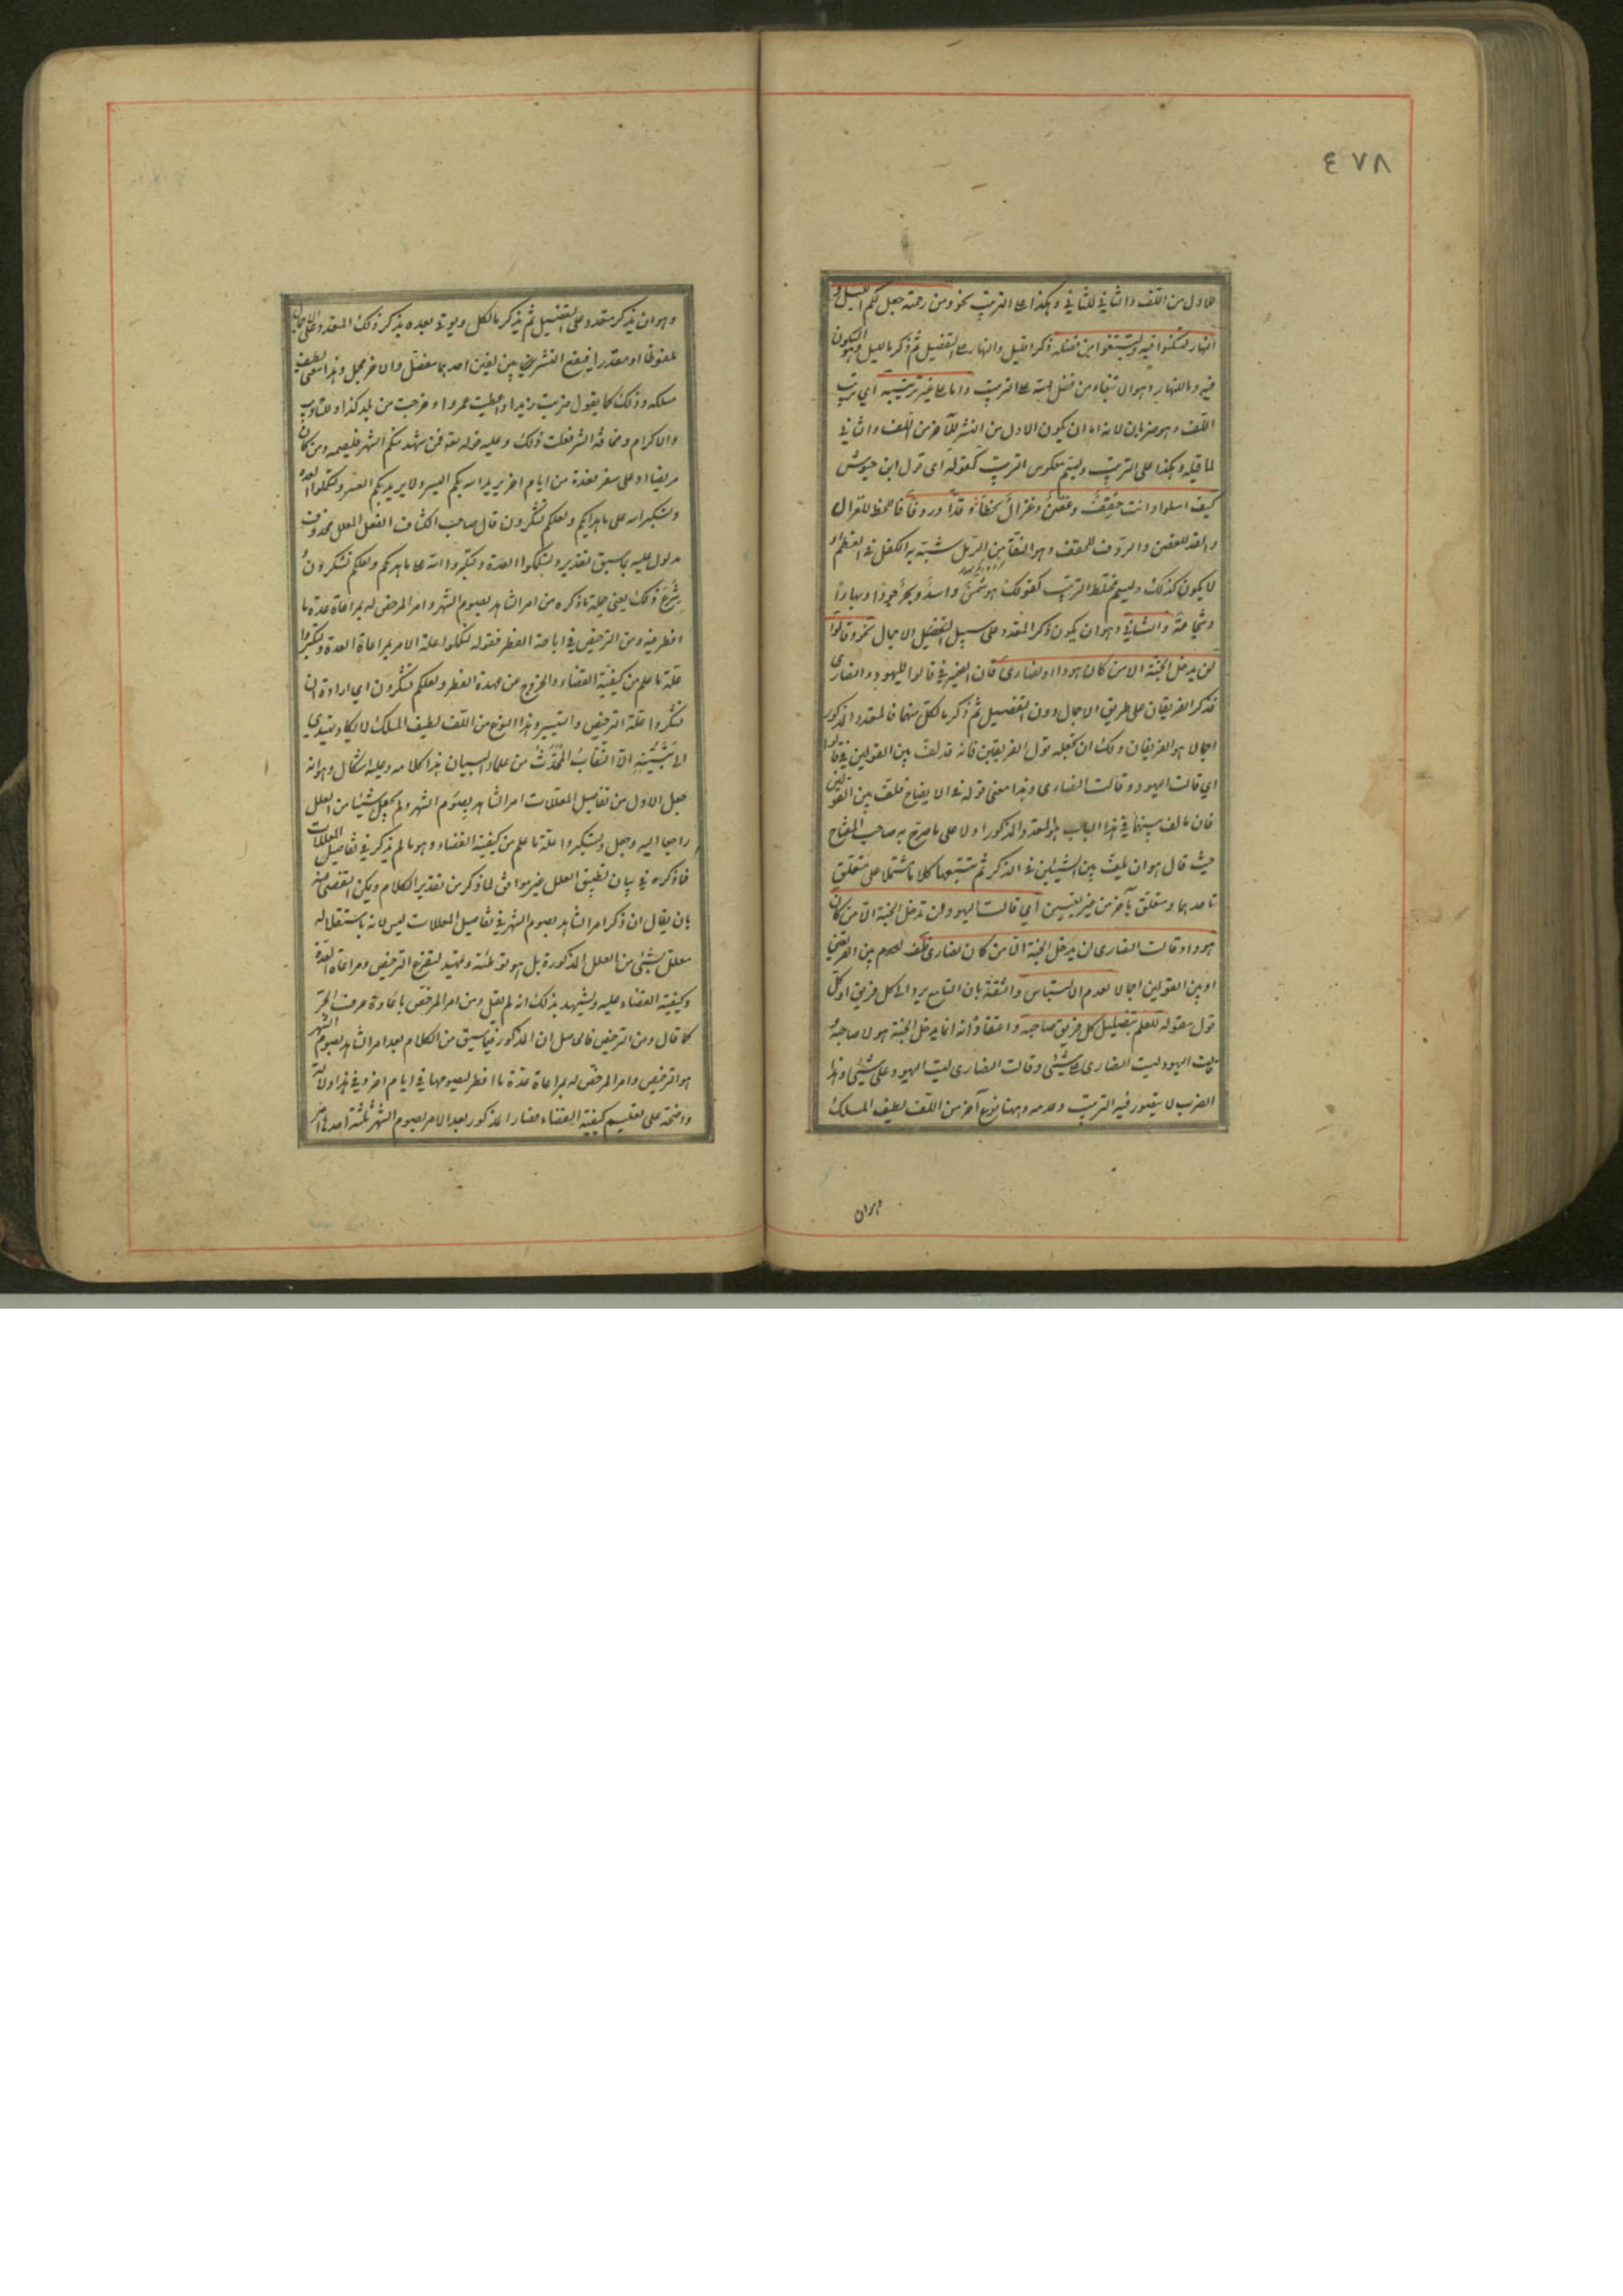 ٤٧٨
للاول من اللف والثاني للثاني وهكذا على الترتيب نحو ومن رحمته جعل لكم الليل و
النهار لتسكنوا فيه ولتبتغوا من فضله ذكر الليل والنهار على التفصيل ثم ذكر ما لليل وهو السكون
فيه وما للنهار وهو الابتغاء من فضل الله على الترتيب واما على غير ترتيبه اي ترتيب
اللف وهو ضربان لانه اما ان يكون الاول من النشر للآخر من اللف والثاني
لما قبله وهكذا على الترتيب وليسم معكوس الترتيب كقوله اي قول ابن حيوش
كيف اسلو وانت حقف وغصن وغزال لحظا وقدا وردفا فاللحظ للغزال
والقد للغصن والردف للحقف وهو النقا من الرمل شبه به الكفل في العظم او
لا يكون كذلك وليسم مختلط الترتيب كقولك هو شمس واسد وبحر جودا وبهاء
وشجاعة والثاني وهو ان يكون ذكر المتعدد على سبيل التفصيل الاجمال نحو وقالوا
لن يدخل الجنة الا من كان هودا او نصارى فان الضمير في قالوا لليهود والنصارى
فذكر الفريقان على طريق الاجمال دون التفصيل ثم ذكر ما لكل منهما فالمتعدد المذكور
اجمالا هو الفريقان ولك ان تجعله قول الفريقين فانه قد لف بين القولين في قالوا
اي قالت اليهود وقالت النصارى وهذا معنى قوله في الايضاح فلف بين القولين
فان ما لف بينهما في هذا الباب هو المتعدد المذكور اولا على ما صرح به صاحب المفتاح
حيث قال هو ان تلف بين الشيئين في الذكر ثم تتبعهما كلاما مشتملا على متعلق
باحدهما ومتعلق بآخر من غير تعيين اي قالت اليهود لن تدخل الجنة الا من كان
هودا وقالت النصارى لن يدخل الجنة الا من كان نصارى فلف لعدم بين الفريقين
او بين القولين اجمالا لعدم الالتباس والثقة بان السامع يرد الى كل فريق او كل
قول مقوله للعلم بتضليل كل فريق صاحبه واعتقاده انه انما يدخل الجنة هو لا صاحبه
قالت اليهود ليست النصارى على شيء وقالت النصارى ليست اليهود على شيء وهذا
الضرب لا يتصور فيه الترتيب وعدمه وههنا نوع آخر من اللف لطيف المسلك
وهو ان
وهو ان يذكر متعدد على التفصيل ثم يذكر ما لكل ويؤتى بعده بذكر ذلك المتعدد على الاجمال
ملفوظا او مقدرا فيقع النشر بين لفين احدهما مفصل والاخر مجمل وهذا معنى لطيف
مسلكه وذلك كما يقول ضربت زيدا واعطيت عمروا وخرجت من بلد كذا وللتاديب
والاكرام ومخافة الشر فعلت ذلك وعليه قوله تعه فمن شهد منكم الشهر فليصمه ومن كان
مريضا او على سفر فعدة من ايام اخر يريد الله بكم اليسر ولا يريد بكم العسر ولتكملوا العدة
ولتكبروا الله على ما هداكم ولعلكم تشكرون قال صاحب الكشاف الفعل المعلل محذوف
مدلول عليه بما سبق تقديره ولتكملوا العدة ولتكبروا الله على ما هديكم ولعلكم تشكرون
شرع ذلك يعني جملة ما ذكره من امر الشاهد بصوم الشهر وامر المرخص له بمراعاة عدة ما
افطر فيه ومن الترخيص في اباحة الفطر فقوله لتكملوا علة الامر بمراعاة العدة ولتكبروا
علة ما علم من كيفية القضاء والخروج عن عهدة الفطر ولعلكم تشكرون اي ارادة ان
تشكروا علة الترخيص والتيسير وهذا النوع من اللف لطيف المسلك لا يكاد يهتدي
الى تبينه الا النقاب المحدث من علماء البيان هذا كلامه وعليه اشكال وهو انه
جعل الاول من تفاصيل المعللات امر الشاهد بصوم الشهر ولم يجعل شيئا من العلل
راجعا اليه وجعل ولتكبروا علة ما علم من كيفية القضاء وهو ما لم يذكر في تفاصيل المعللات
فما ذكره في بيان تطبيق العلل غير موافق لما ذكر من تقدير الكلام ويمكن التفصي عنه
بان يقال ان ذكر امر الشاهد بصوم الشهر في تفاصيل المعللات ليس لانه باستقلاله
معلل بشيء من العلل المذكورة بل هو توطئة وتمهيد لتفرع الترخيص ومراعاة العدة
وكيفية القضاء عليه ويشهد بذلك انه لم يقل ومن امر المرخص باعادة حرف الجر
كما قال ومن الترخيص فالحاصل ان المذكور فيما سبق من الكلام بعد امر الشاهد بصوم الشهر
هو الترخيص وامر المرخص له بمراعاة عدة ما افطر ليصومها في ايام اخر وفي هذا دلالة
واضحة على تعليم كيفية القضاء فصار المذكور بعد الامر بصوم الشهر ثلثة احدها امر